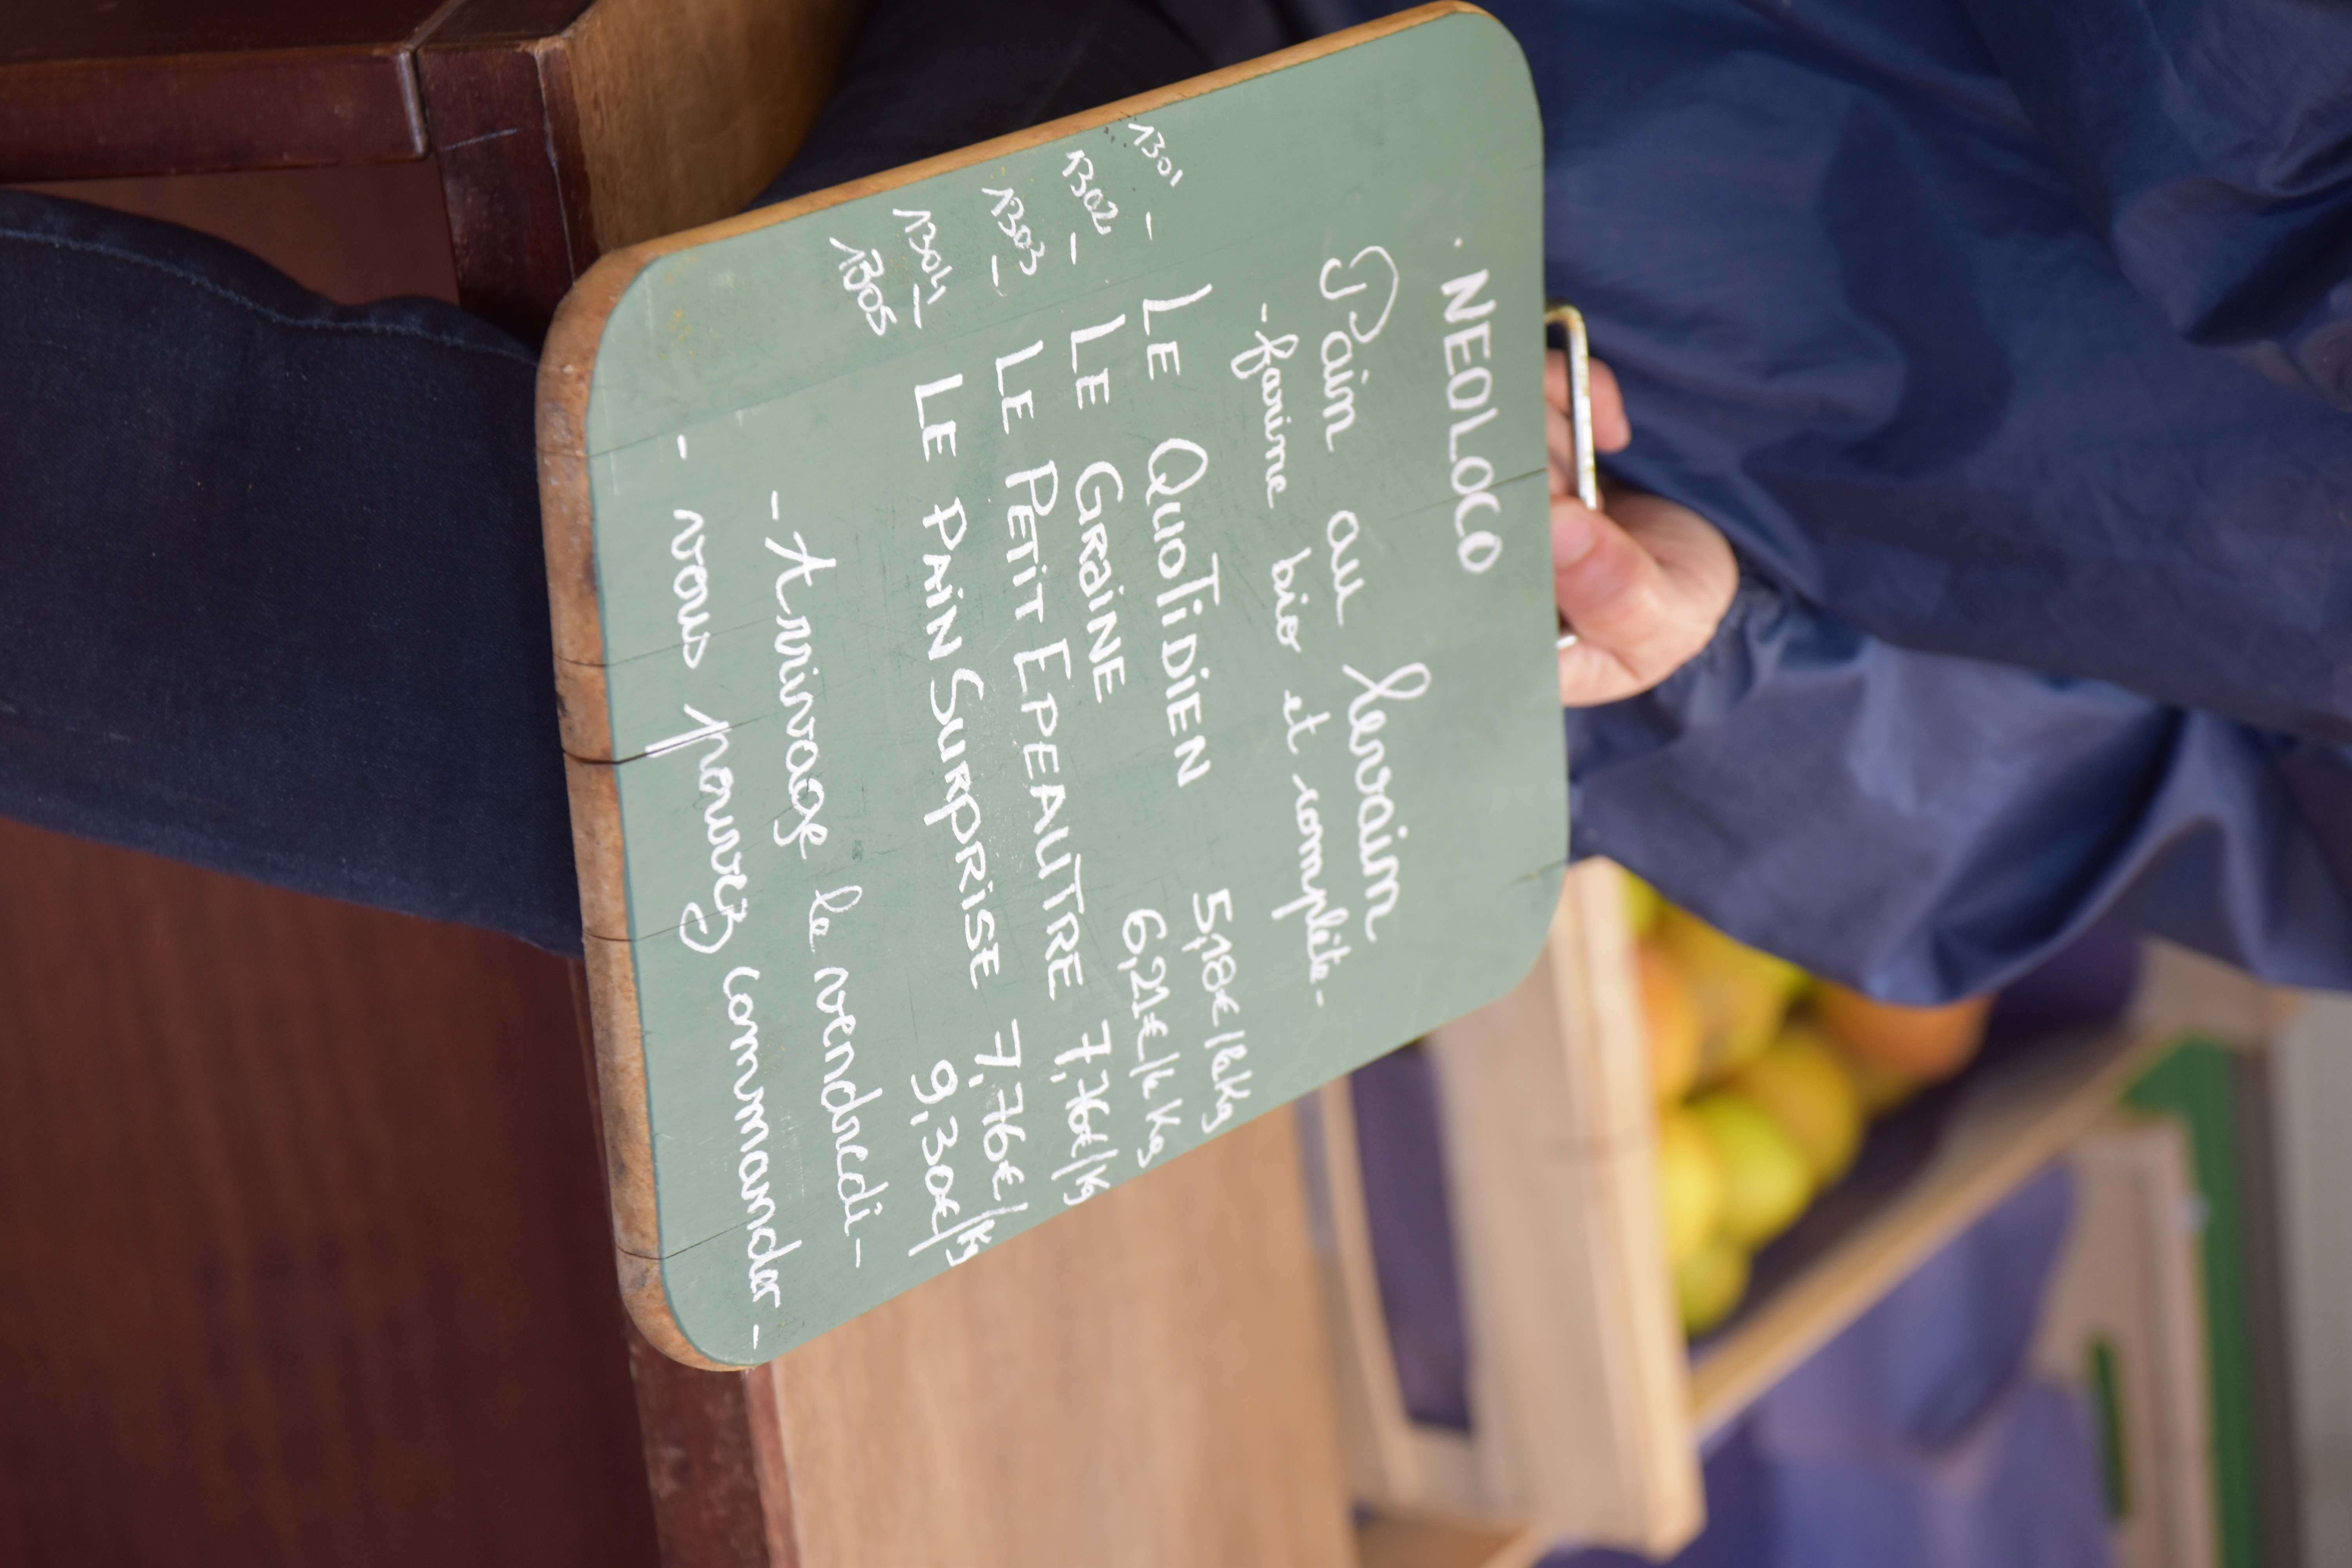 . NEOLOCO
Pain au levain
- farine bio et complète -
1301 - LE QUOTIDIEN 5,18€/kg
1302 - LE GRAINE 6,21€/kg
1303 - LE PETIT EPEAUTRE 7,76€/kg
1304 - LE PAIN SURPRISE 7,76€/kg
1305 9,30€/kg
- Arrivage le vendredi -
- vous pouvez commander -